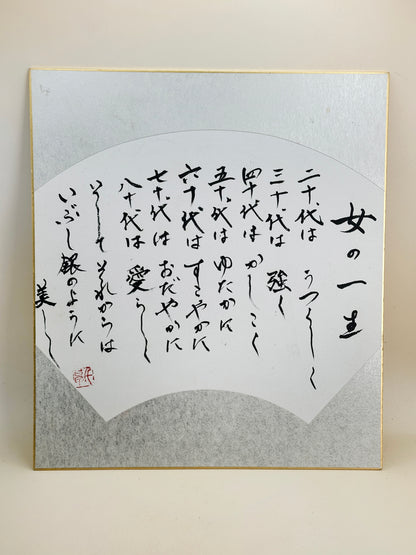 女の一生
二十代は うつくしく
三十代は 強く
四十代は かしこく
五十代は ゆたかに
六十代は すこやかに
七十代は おだやかに
八十代は 愛らしく
そしてそれからは
いぶし銀のように
美しく